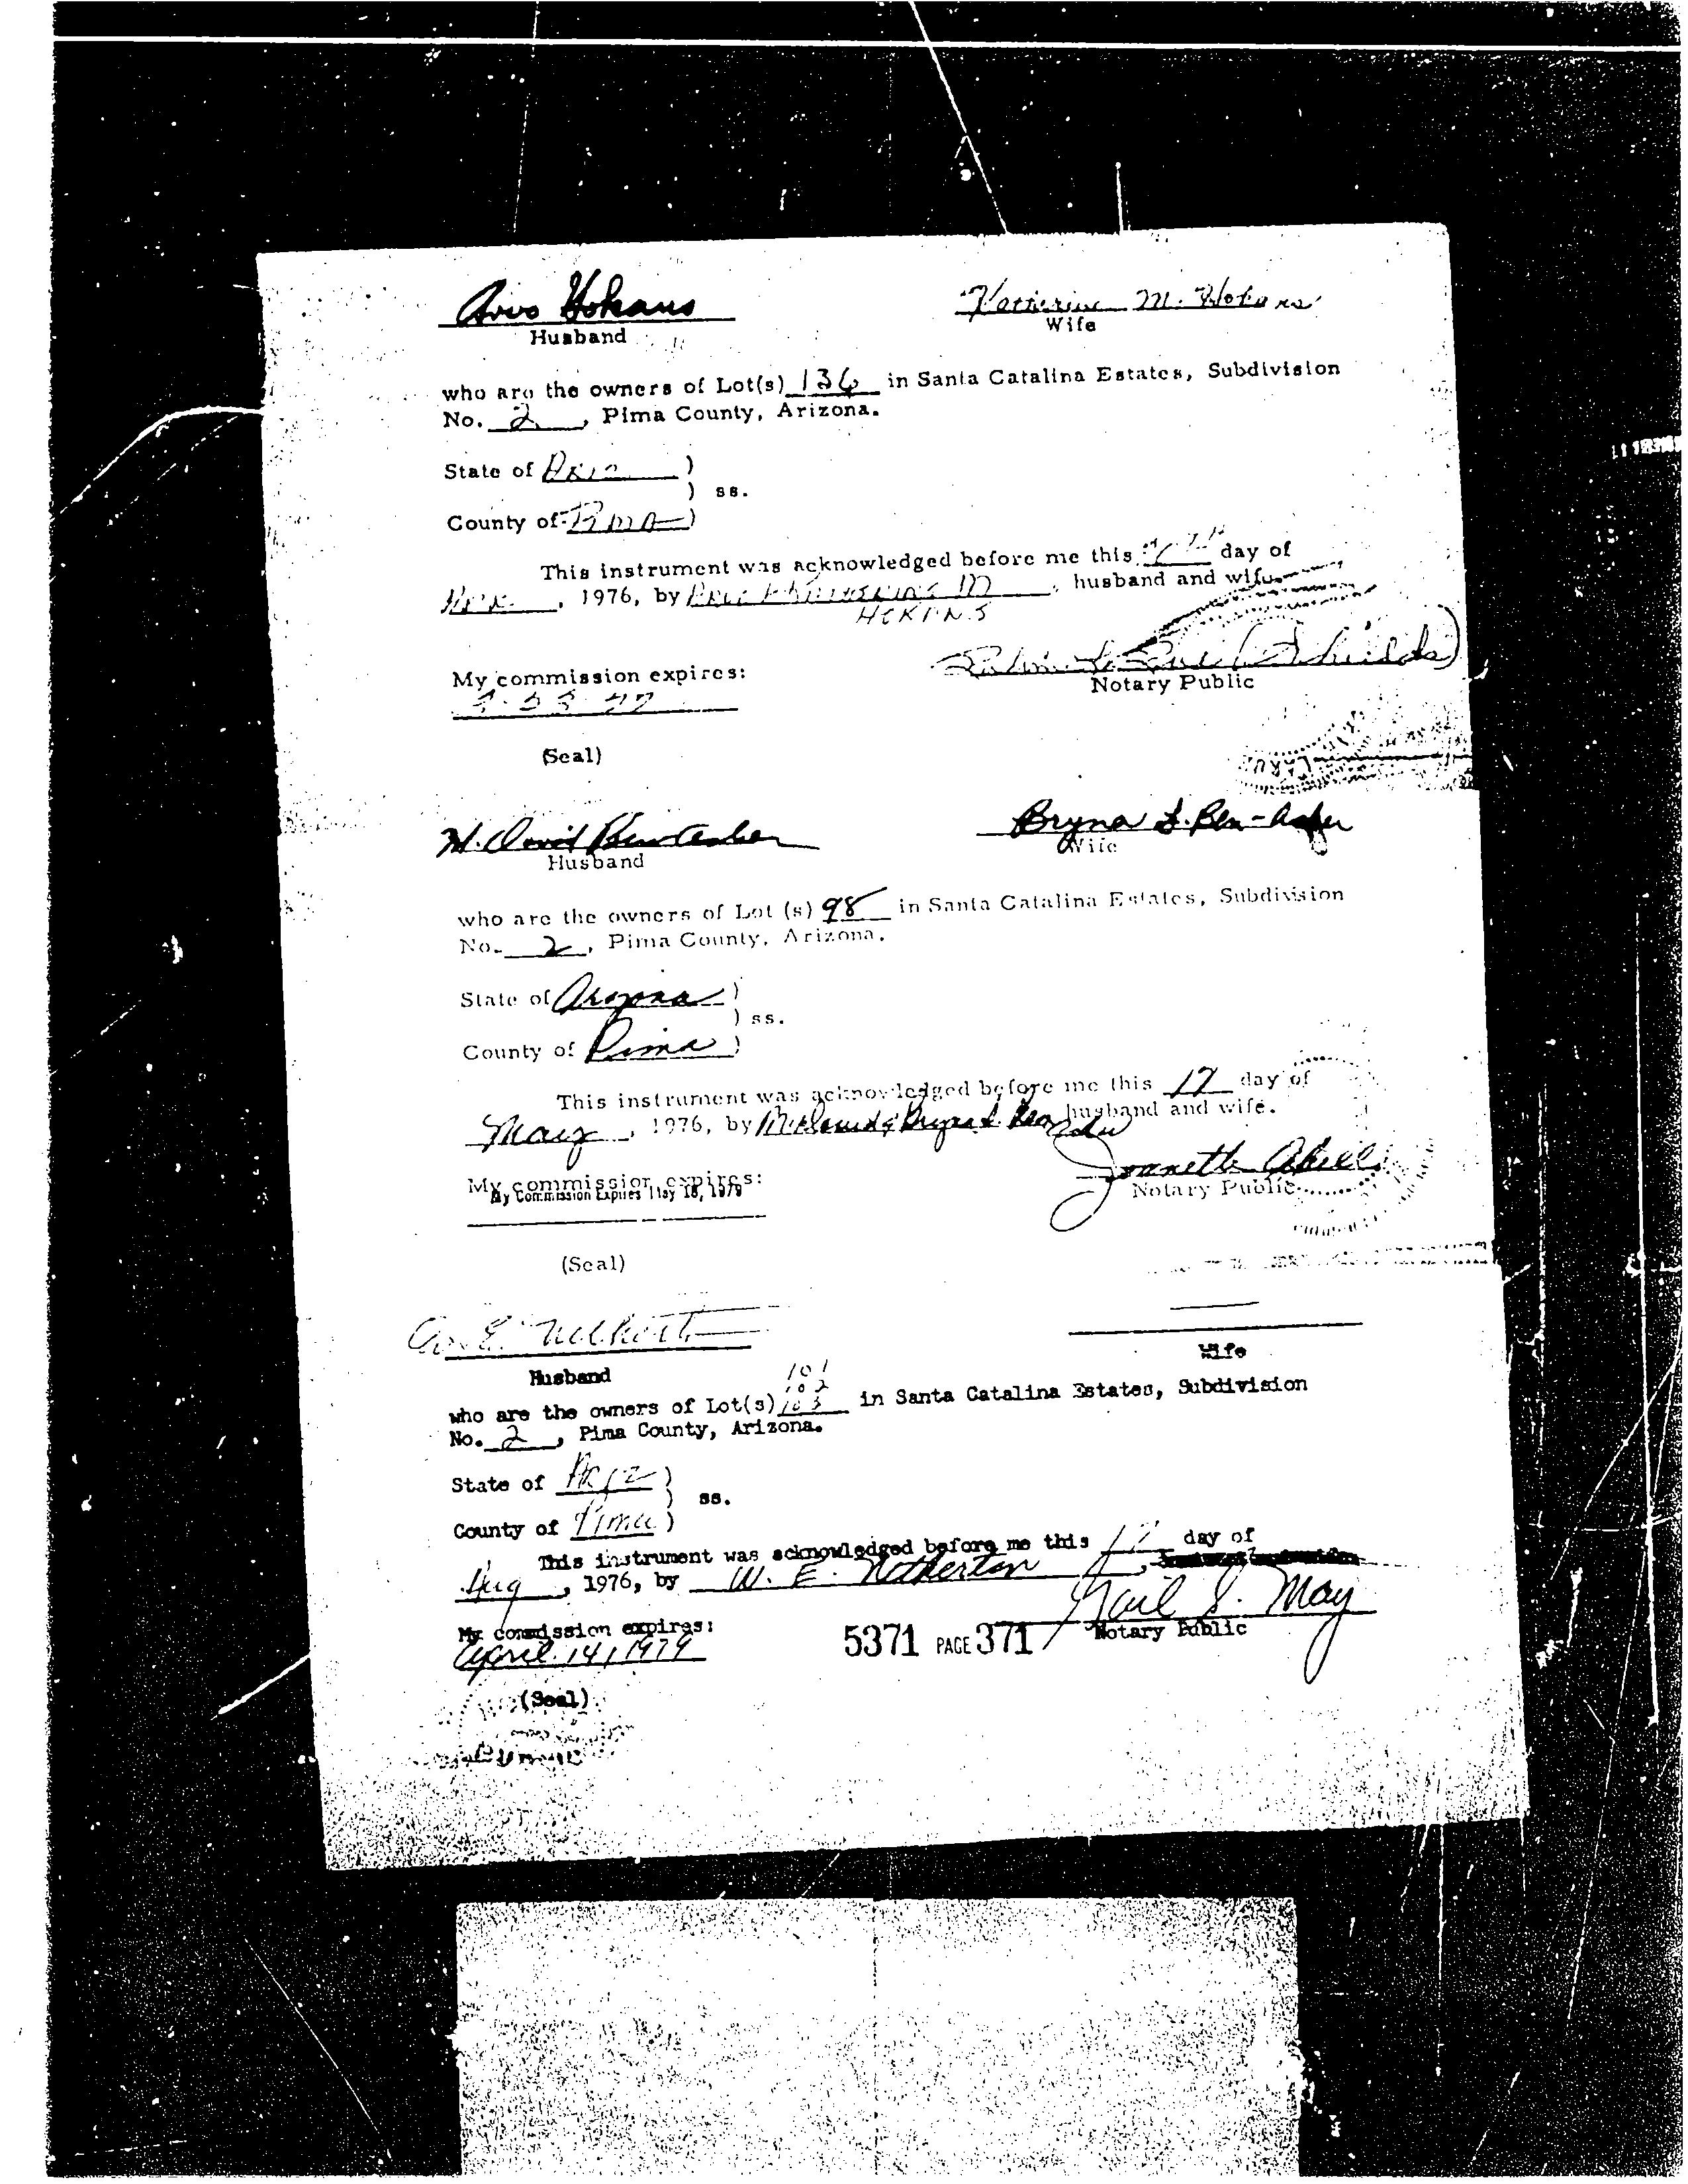 Arvo Hokans
Katherine M. Hokans
Husband
Wife
who are the owners of Lot(s) 136 in Santa Catalina Estates, Subdivision
No. 2, Pima County, Arizona.
State of Ariz )
) ss.
County of Pima )
This instrument was acknowledged before me this day of
, 1976, by M , husband and wife
HOKANS
Notary Public
My commission expires:
(Seal)
M. David Ben-Asher
Bryna L. Ben-Asher
Husband
Wife
who are the owners of Lot (s) 98 in Santa Catalina Estates, Subdivision
No. 2, Pima County, Arizona.
State of Arizona )
) ss.
County of Pima )
This instrument was acknowledged before me this 17 day of
May, 1976, by M. David & Bryna L. Ben Asher husband and wife.
My commission expires:
My Commission Expires May 18, 1979
Notary Public
(Seal)
W. E. Netherton
Husband
Wife
101
102
who are the owners of Lot(s) 103 in Santa Catalina Estates, Subdivision
No. 2, Pima County, Arizona.
State of Ariz )
) ss.
County of Pima )
This instrument was acknowledged before me this 17 day of
Aug, 1976, by W. E. Netherton
Gail S. May
My commission expires:
Notary Public
April 14, 1979
5371 PAGE 371
(Seal)